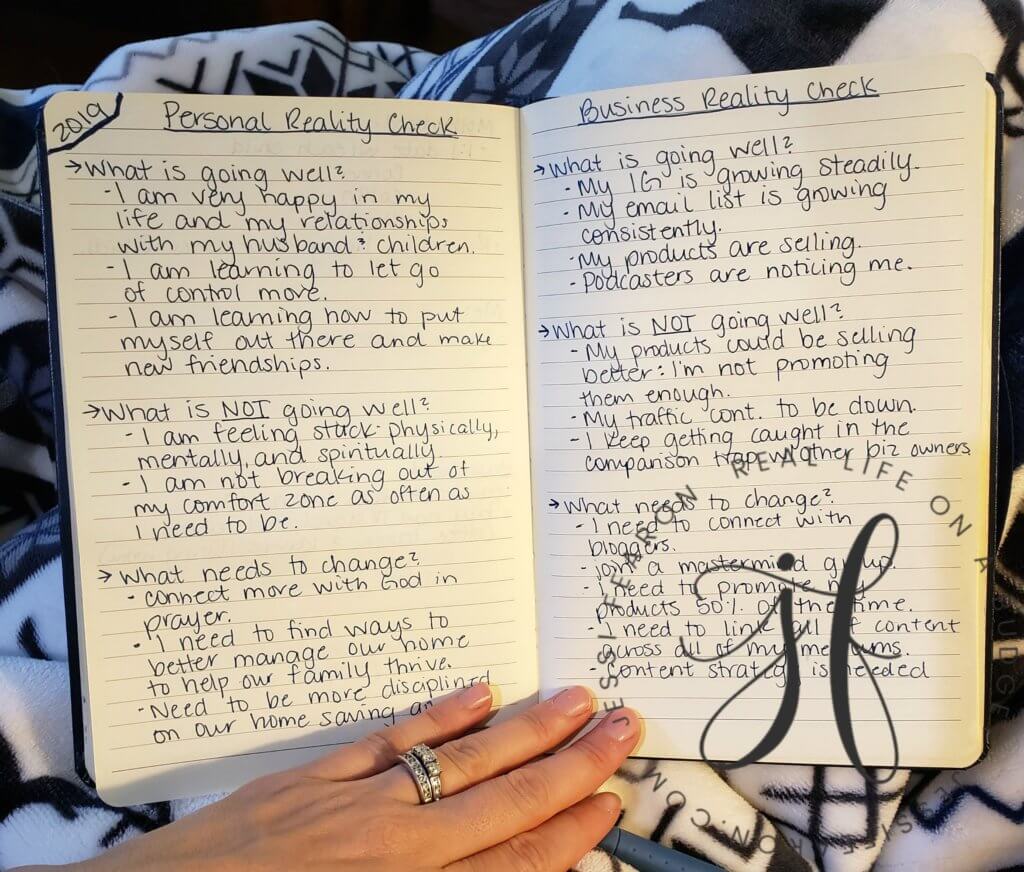 2019
Personal Reality Check
→What is going well?
- I am very happy in my
life and my relationships
with my husband & children.
- I am learning to let go
of control more.
- I am learning how to put
myself out there and make
new friendships.
→What is NOT going well?
- I am feeling stuck- physically,
mentally, and spiritually.
- I am not breaking out of
my comfort zone as often as
I need to be.
→What needs to change?
- Connect more with God in
prayer.
- I need to find ways to
better manage our home
to help our family thrive.
- Need to be more disciplined
on our home saving
Business Reality Check
→What is going well?
- My IG is growing steadily.
- My email list is growing
consistently.
- My products are selling.
- Podcasters are noticing me.
→What is NOT going well?
- My products could be selling
better: I'm not promoting
them enough.
- My traffic cont. to be down.
- I keep getting caught in the
comparison trap w/ other biz owners
→What needs to change?
- I need to connect with
bloggers.
- Join a mastermind group.
- I need to promote my
products 50% of the time.
- I need to link all of content
across all of my mediums.
- Content strategy is needed
JESSI FEARON REAL LIFE ON A BUDGET
jf
JESSIFEARON.COM